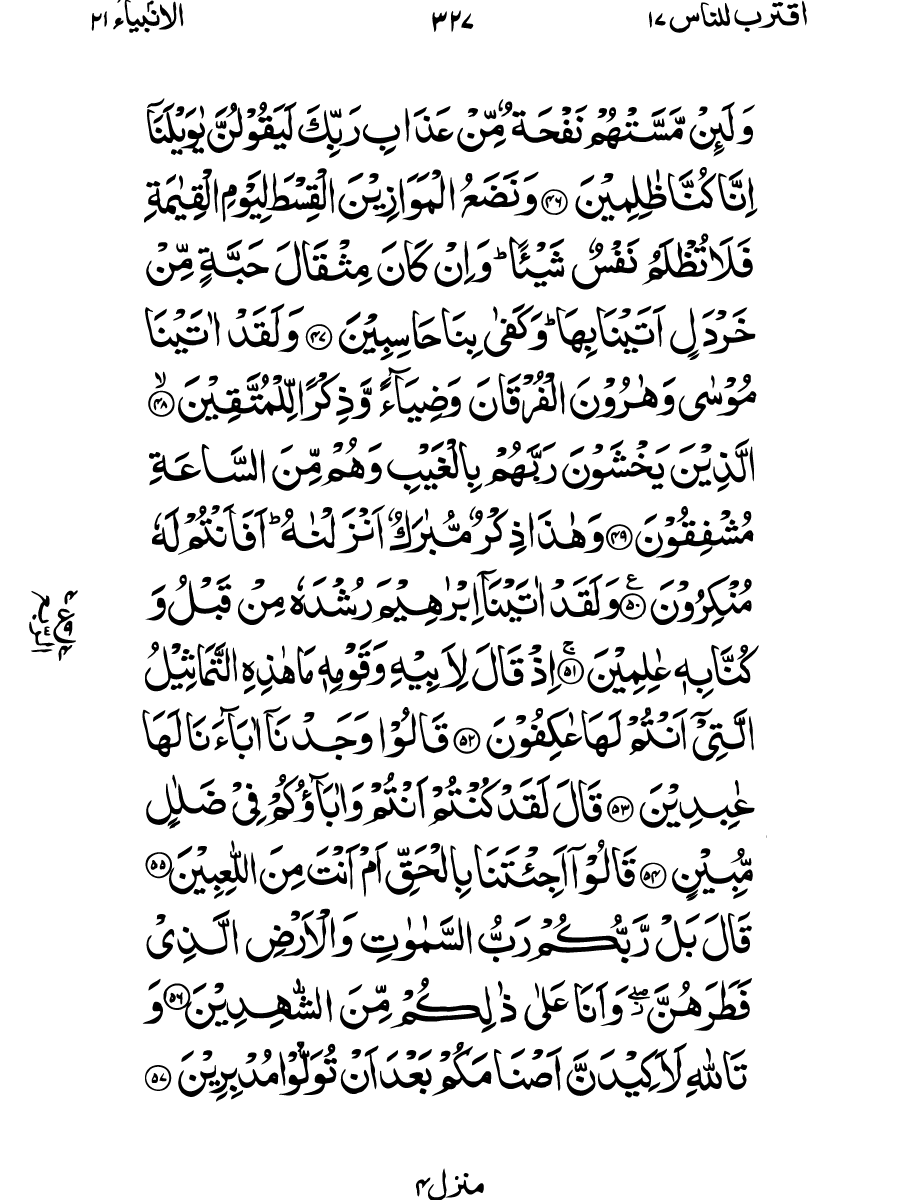 اقترب للناس ١٧
٣٢٧
الانبياء ٢١
وَلَئِنْ مَّسَّتْهُمْ نَفْحَةٌ مِّنْ عَذَابِ رَبِّكَ لَيَقُوْلُنَّ يٰوَيْلَنَاۤ
اِنَّا كُنَّا ظٰلِمِيْنَ ﴿۴۶﴾ وَنَضَعُ الْمَوَازِيْنَ الْقِسْطَ لِيَوْمِ الْقِيٰمَةِ
فَلَا تُظْلَمُ نَفْسٌ شَيْئًا ؕ وَاِنْ كَانَ مِثْقَالَ حَبَّةٍ مِّنْ
خَرْدَلٍ اَتَيْنَا بِهَا ؕ وَكَفٰى بِنَا حَاسِبِيْنَ ﴿۴۷﴾ وَلَقَدْ اٰتَيْنَا
مُوْسٰى وَهٰرُوْنَ الْفُرْقَانَ وَضِيَآءً وَّذِكْرًا لِّلْمُتَّقِيْنَ ﴿۴۸﴾ ۙ
الَّذِيْنَ يَخْشَوْنَ رَبَّهُمْ بِالْغَيْبِ وَهُمْ مِّنَ السَّاعَةِ
مُشْفِقُوْنَ ﴿۴۹﴾ وَهٰذَا ذِكْرٌ مُّبٰرَكٌ اَنْزَلْنٰهُ ؕ اَفَاَنْتُمْ لَهٗ
مُنْكِرُوْنَ ﴿۵۰﴾ ع وَلَقَدْ اٰتَيْنَاۤ اِبْرٰهِيْمَ رُشْدَهٗ مِنْ قَبْلُ وَ
كُنَّا بِهٖ عٰلِمِيْنَ ﴿۵۱﴾ ۚ اِذْ قَالَ لِاَبِيْهِ وَقَوْمِهٖ مَا هٰذِهِ التَّمَاثِيْلُ
الَّتِيْۤ اَنْتُمْ لَهَا عٰكِفُوْنَ ﴿۵۲﴾ قَالُوْا وَجَدْنَاۤ اٰبَآءَنَا لَهَا
عٰبِدِيْنَ ﴿۵۳﴾ قَالَ لَقَدْ كُنْتُمْ اَنْتُمْ وَاٰبَآؤُكُمْ فِيْ ضَلٰلٍ
مُّبِيْنٍ ﴿۵۴﴾ قَالُوْۤا اَجِئْتَنَا بِالْحَقِّ اَمْ اَنْتَ مِنَ اللّٰعِبِيْنَ ﴿۵۵﴾
قَالَ بَلْ رَّبُّكُمْ رَبُّ السَّمٰوٰتِ وَالْاَرْضِ الَّذِيْ
فَطَرَهُنَّ ۖ وَاَنَا عَلٰى ذٰلِكُمْ مِّنَ الشّٰهِدِيْنَ ﴿۵۶﴾ وَ
تَاللّٰهِ لَاَكِيْدَنَّ اَصْنَامَكُمْ بَعْدَ اَنْ تُوَلُّوْا مُدْبِرِيْنَ ﴿۵۷﴾
الربع
منزل ۴